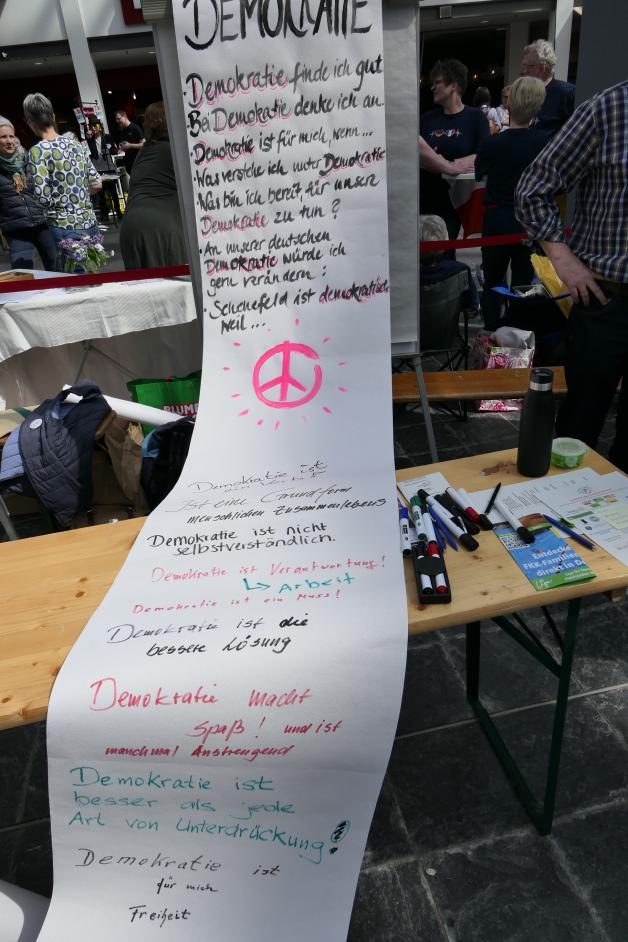 DEMOKRATIE
· Demokratie finde ich gut
Bei Demokratie denke ich an...
· Demokratie ist für mich, wenn...
· Was verstehe ich unter Demokratie
· Was bin ich bereit, für unsere
Demokratie zu tun?
· An unserer deutschen
Demokratie würde ich
gern verändern:
· Schenefeld ist demokratisch
weil...
Demokratie ist
Ist eine Grundform
menschlichen Zusammenlebens
Demokratie ist nicht
selbstverständlich.
Demokratie ist Verantwortung!
↳ Arbeit
Demokratie ist ein Muss!
Demokratie ist die
bessere Lösung
Demokratie macht
Spaß! und ist
manchmal Anstrengend
Demokratie ist
besser als jede
Art von Unterdrückung!
Demokratie ist
für mich
Freiheit
Entdecke
FKK-Familien
direkt in De